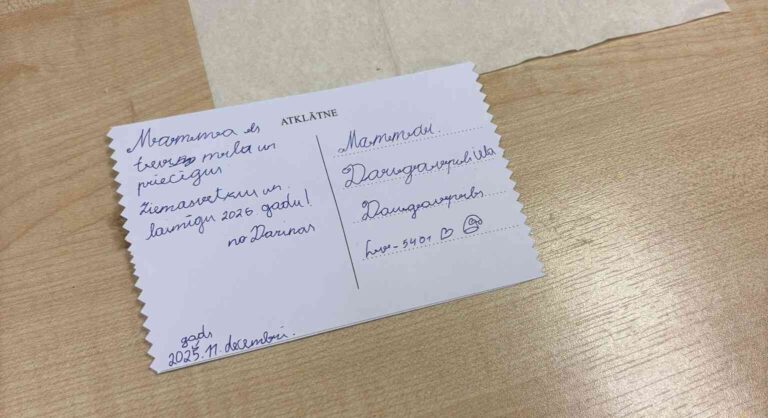 ATKLĀTNE
Mamma es
tevi mīla un
priecīgus
Ziemasvētkus un
laimīgu 2026 gadu!
no Darinas
gads
2025. 11. decembrī.
Mammai.
Daugavpils
Lv-5401